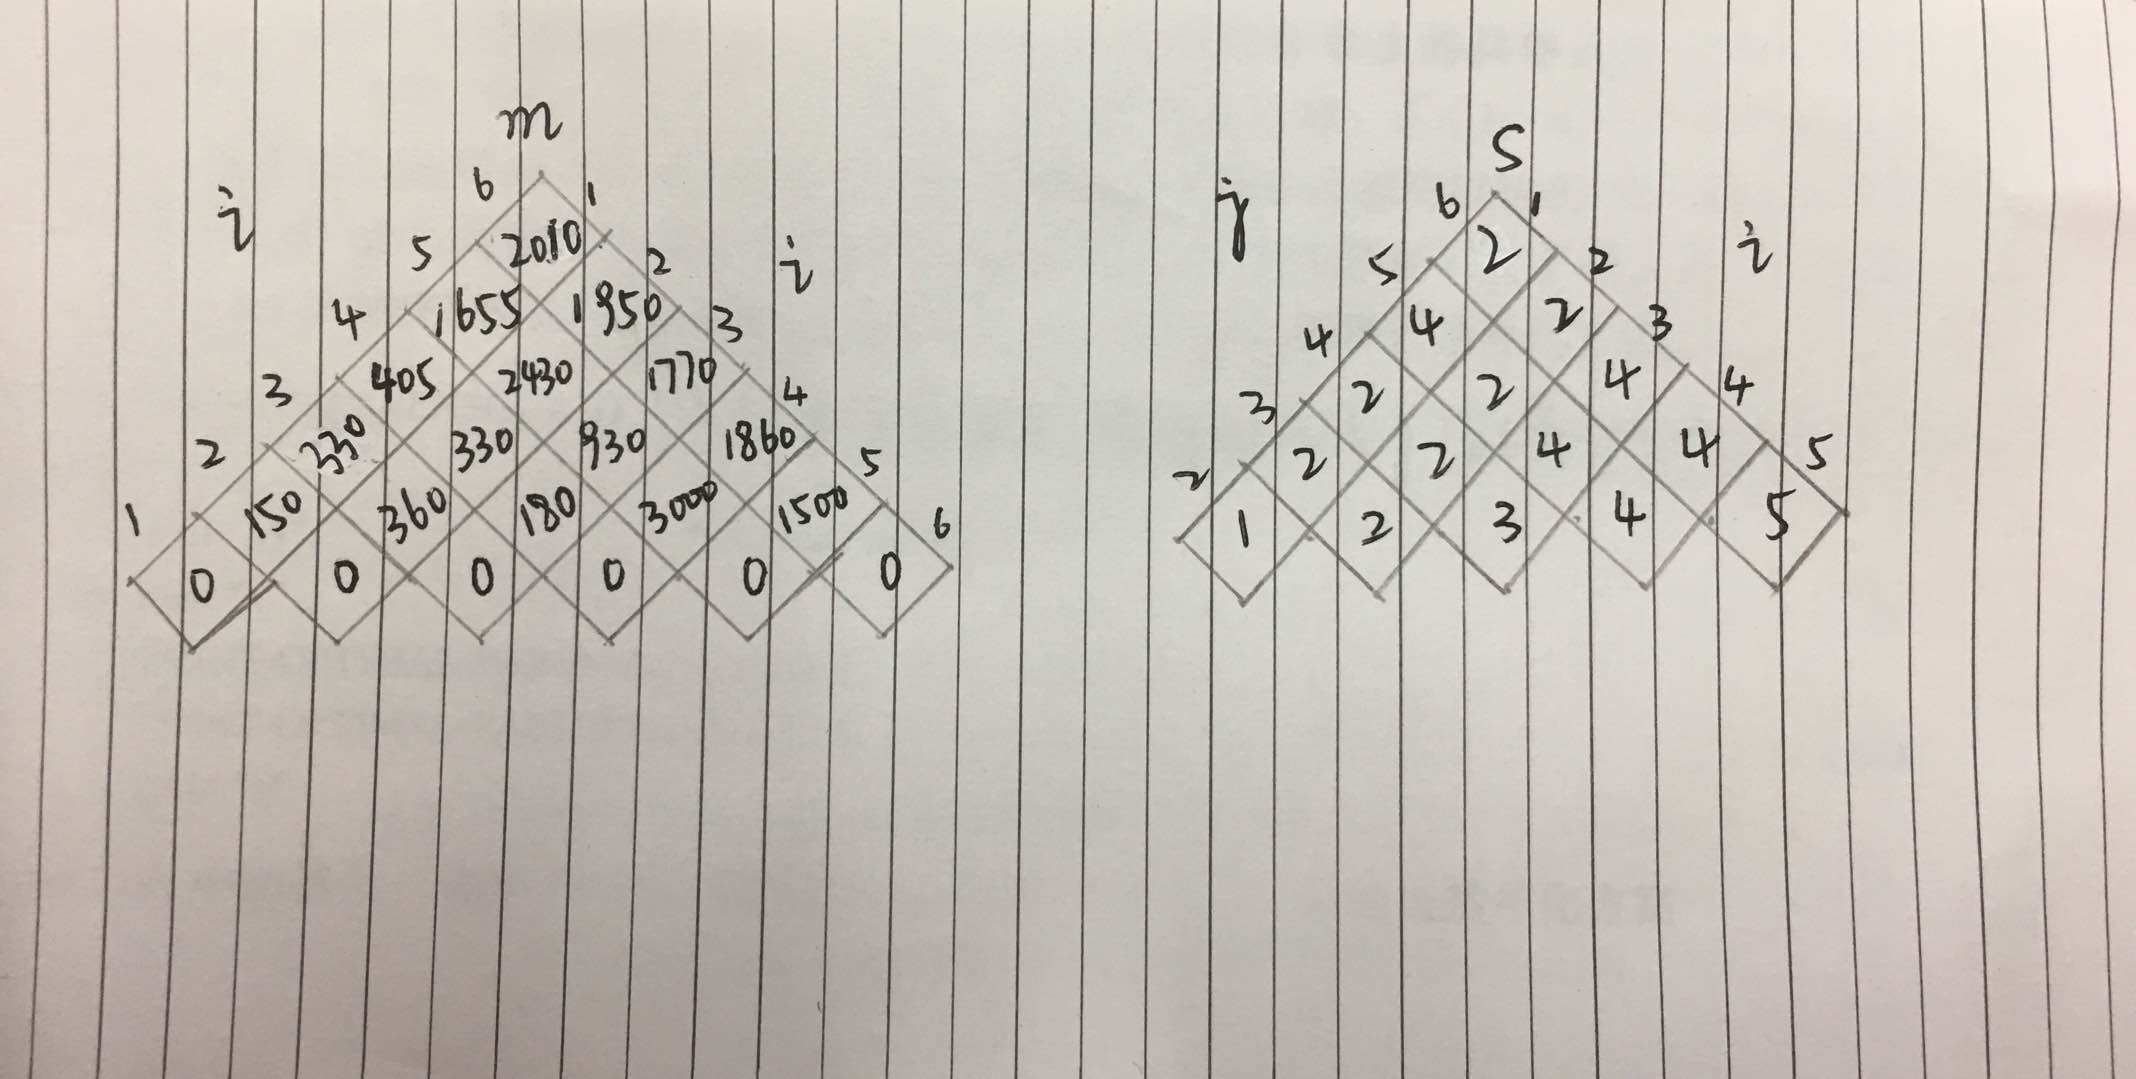 m
6 1
i 2010
5 2 i
1655 1950
4 3
405 2430 1770
3 4
330 330 930 1860
2 5
150 360 180 3000 1500
1 6
0 0 0 0 0 0
S
j 6 1
2 i
5 2
4 2
4 3
2 2 4
3 4
2 2 4 4
2 5
1 2 3 4 5